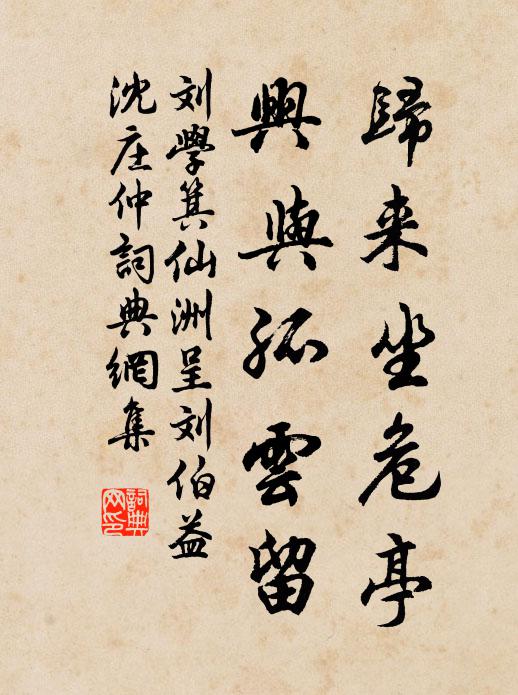 歸来坐危亭
興與孤雲留
刘學箕仙洲呈刘伯益
沈庄仲詞典網集
詞典网印